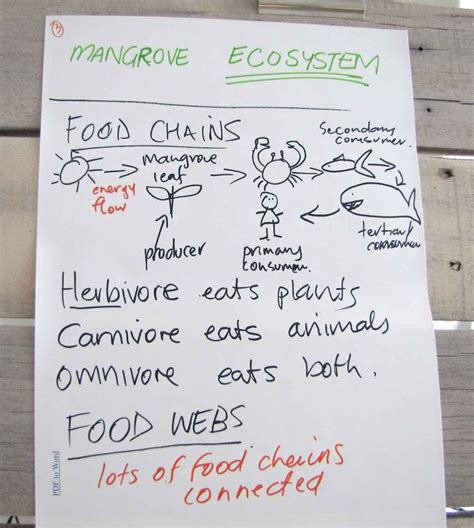 MANGROVE ECOSYSTEM
FOOD CHAINS
secondary consumer
mangrove leaf
energy flow
producer
primary consumer
tertiary consumer
Herbivore eats plants
Carnivore eats animals
Omnivore eats both.
FOOD WEBS
lots of food chains
connected
PDF to Word